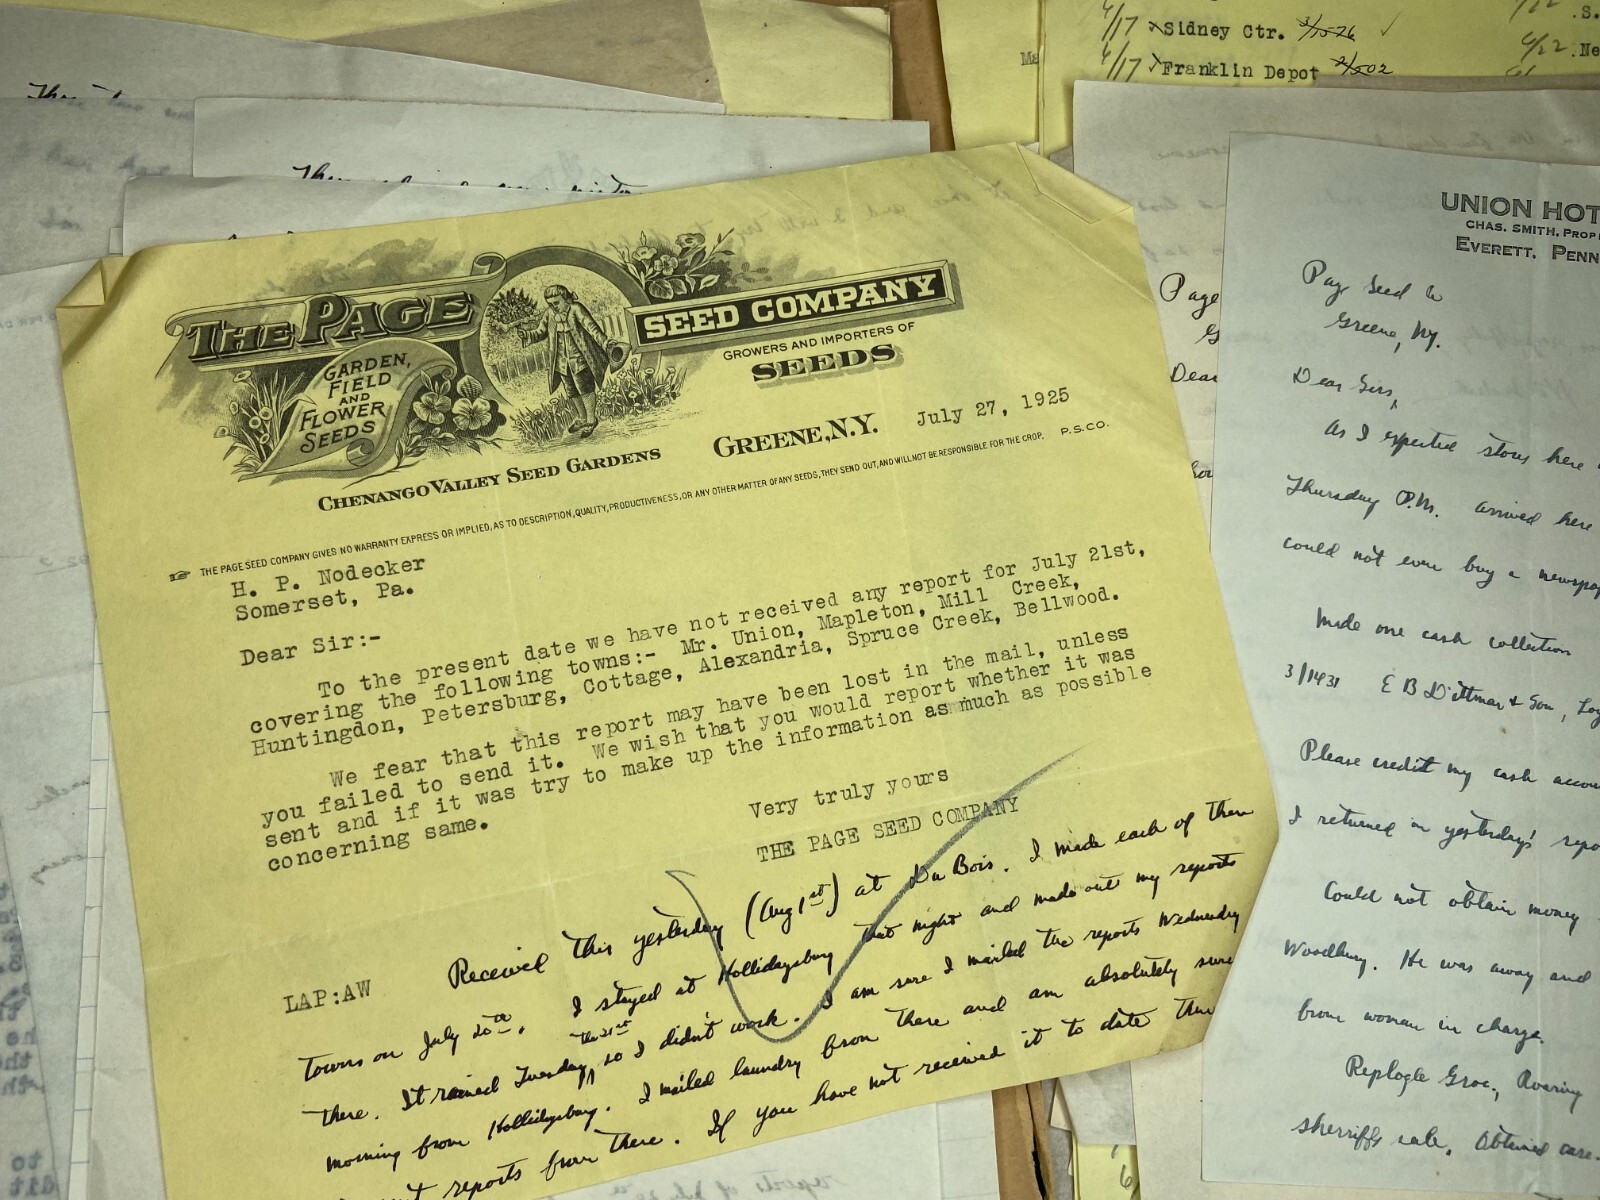 4/17 Sidney Ctr.
4/17 Franklin Depot
4/22
THE PAGE SEED COMPANY
GARDEN,
FIELD
AND
FLOWER
SEEDS
GROWERS AND IMPORTERS OF
SEEDS
CHENANGO VALLEY SEED GARDENS
GREENE, N.Y. July 27, 1925
THE PAGE SEED COMPANY GIVES NO WARRANTY EXPRESS OR IMPLIED, AS TO DESCRIPTION, QUALITY, PRODUCTIVENESS, OR ANY OTHER MATTER OF ANY SEEDS, THEY SEND OUT, AND WILL NOT BE RESPONSIBLE FOR THE CROP. P.S.CO.
H. P. Nodecker
Somerset, Pa.
Dear Sir:-
To the present date we have not received any report for July 21st,
covering the following towns:- Mr. Union, Mapleton, Mill Creek,
Huntingdon, Petersburg, Cottage, Alexandria, Spruce Creek, Bellwood.
We fear that this report may have been lost in the mail, unless
you failed to send it. We wish that you would report whether it was
sent and if it was try to make up the information as much as possible
concerning same.
Very truly yours
THE PAGE SEED COMPANY
LAP:AW
Received this yesterday (Aug 1st) at Du Bois. I made each of these
towns on July 20th. I stayed at Hollidaysburg that night and made out my reports
there. It rained Tuesday the 21st so I didn't work. I am sure I mailed the reports Wednesday
morning from Hollidaysburg. I mailed laundry from there and am absolutely sure
reports from there. If you have not received it to date then
Page
Dear
UNION HOT
CHAS. SMITH, PROP
EVERETT, PENN
Page Seed Co
Greene, NY.
Dear Sirs,
As I expected stores here
Thursday P.M. arrived here
could not even buy a newspap
Made one cash collection
3/1431 E B Dittmar & Son, Loy
Please credit my cash accou
I returned in yesterday's repo
Could not obtain money
Woodbury. He was away and
from woman in charge.
Replogle Groc., Roaring
sherriffs sale. Obtained care